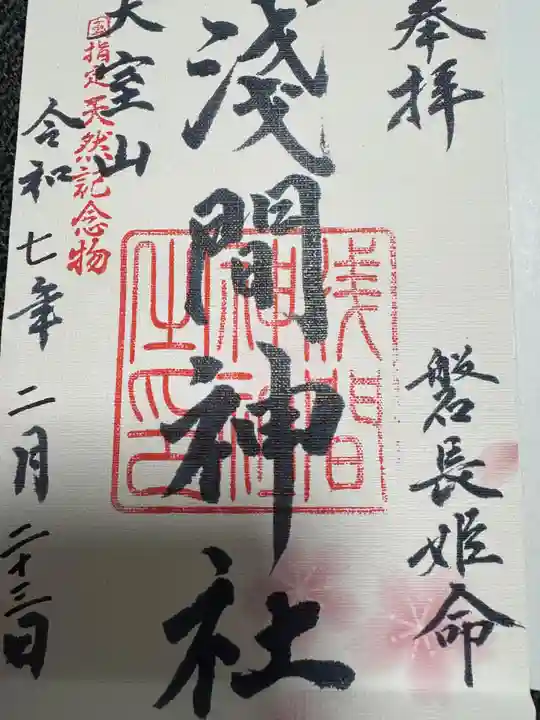 奉拝
磐長姫命
浅間神社
浅間
神社
之印
国指定天然記念物
大室山
令和七年二月二十三日